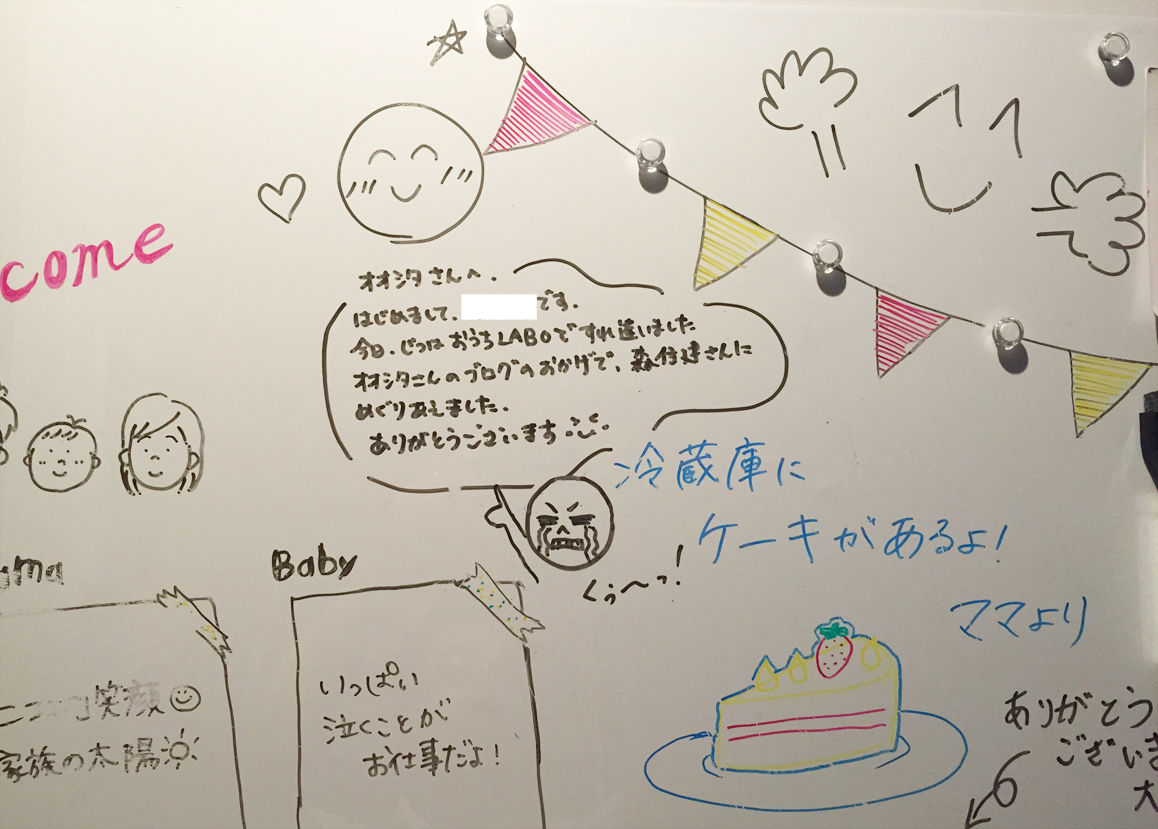 come
オオシタさんへ.
はじめまして. です.
今日、じつはおうちLABOですれ違いました
オオシタさんのブログのおかげで、森住建さんに
めぐりあえました.
ありがとうございます
冷蔵庫に
ケーキがあるよ!
くぅ〜っ!
ママより
ma
笑顔
家族の太陽
Baby
いっぱい
泣くことが
お仕事だよ!
ありがとう
ございま
大